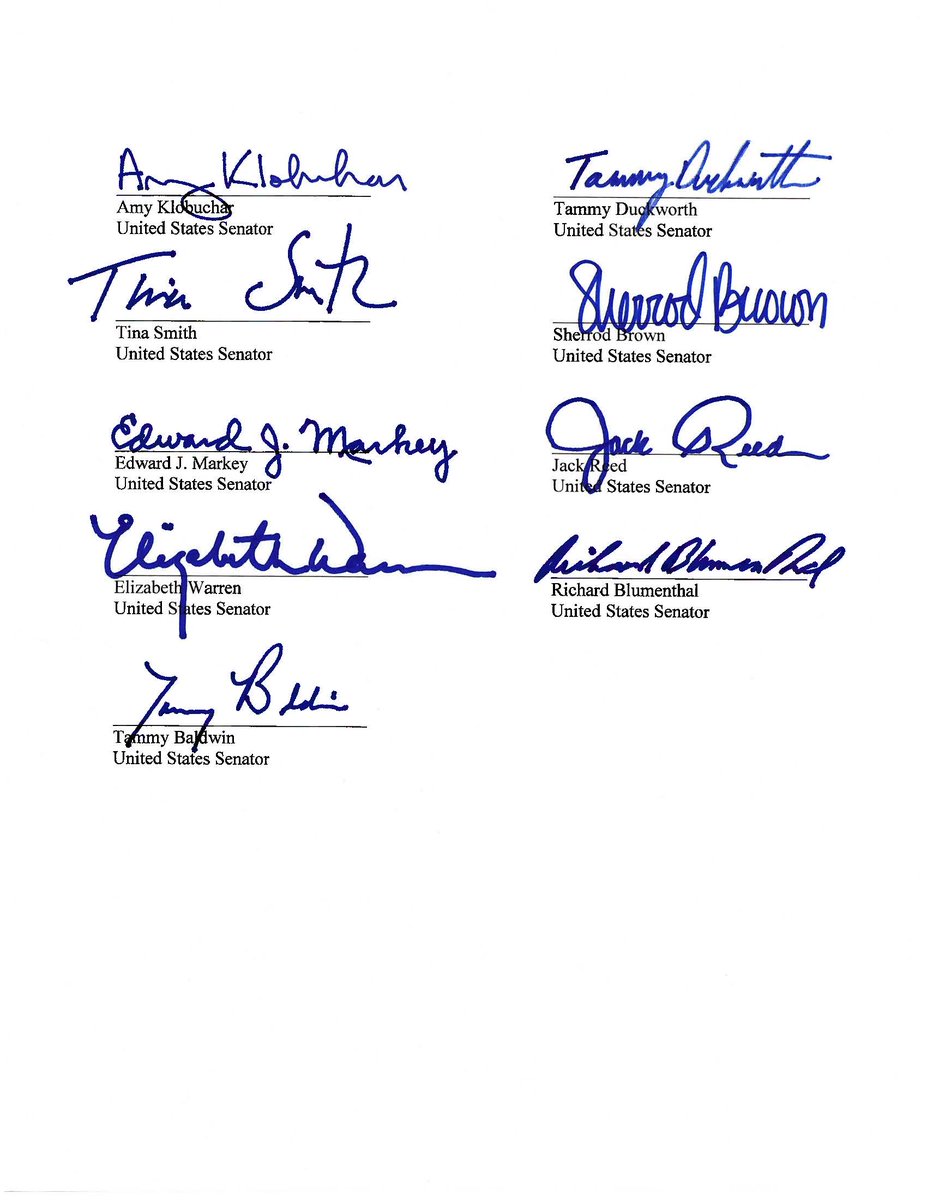 Amy Klobuchar
Amy Klobuchar
United States Senator
Tammy Duckworth
Tammy Duckworth
United States Senator
Tina Smith
Tina Smith
United States Senator
Sherrod Brown
Sherrod Brown
United States Senator
Edward J. Markey
Edward J. Markey
United States Senator
Jack Reed
Jack Reed
United States Senator
Elizabeth Warren
Elizabeth Warren
United States Senator
Richard Blumenthal
Richard Blumenthal
United States Senator
Tammy Baldwin
Tammy Baldwin
United States Senator